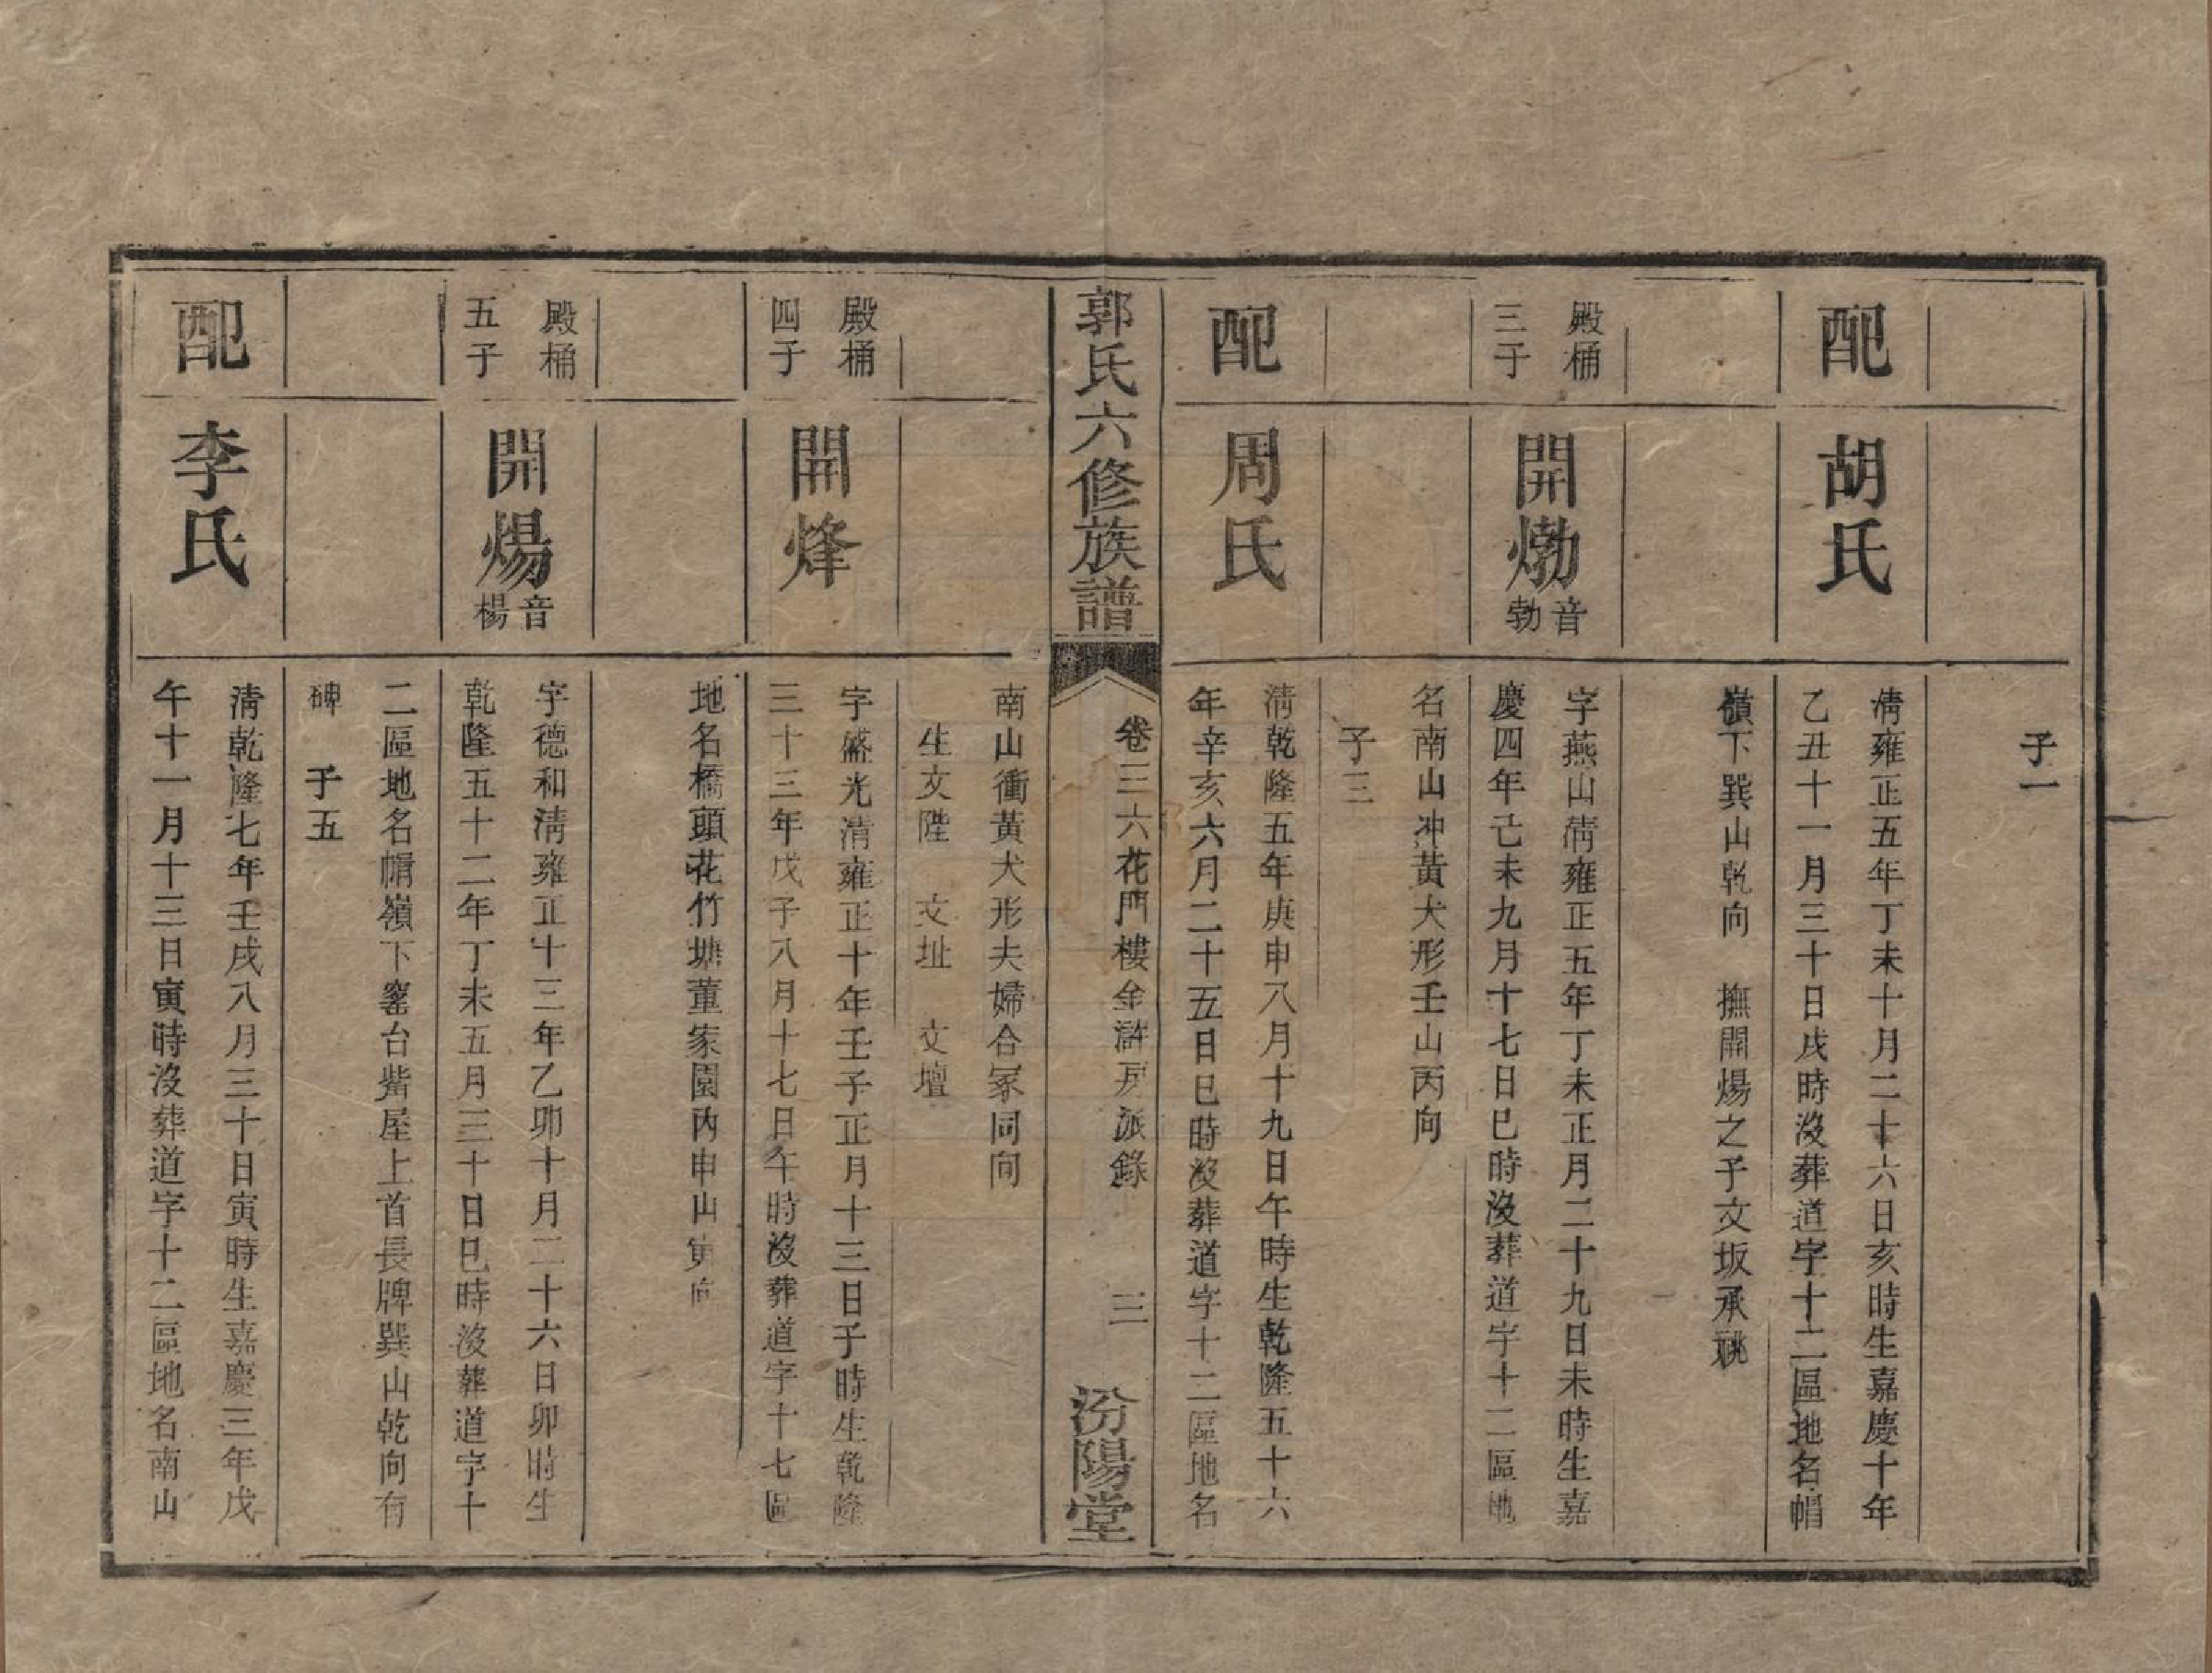 子一
配
胡氏
清雍正五年丁未十月二十六日亥時生嘉慶十年
乙丑十一月三十日戌時沒葬道字十二區地名帽
嶺下巽山乾向　撫開煬之子文坂承祧
殿桶
三子
開㶿
音
勃
字燕山清雍正五年丁未正月二十九日未時生嘉
慶四年己未九月十七日巳時沒葬道字十二區地
名南山冲黃犬形壬山丙向
子三
配
周氏
清乾隆五年庚申八月十九日午時生乾隆五十六
年辛亥六月二十五日巳時沒葬道字十二區地名
郭氏六修族譜
卷三六花門樓金滸房派錄　三
汾陽堂
南山衝黃犬形夫婦合冢同向
生文陞　文址　文壇
殿桶
四子
開烽
字盛光清雍正十年壬子正月十三日子時生乾隆
三十三年戊子八月十七日午時沒葬道字十七區
地名橋頭花竹塘董家園內申山寅向
殿桶
五子
開煬
音
楊
字德和清雍正十三年乙卯十月二十六日卯時生
乾隆五十二年丁未五月三十日巳時沒葬道字十
二區地名帽嶺下窰台觜屋上首長牌巽山乾向有
碑　子五
配
李氏
清乾隆七年壬戌八月三十日寅時生嘉慶三年戊
午十一月十三日寅時沒葬道字十二區地名南山